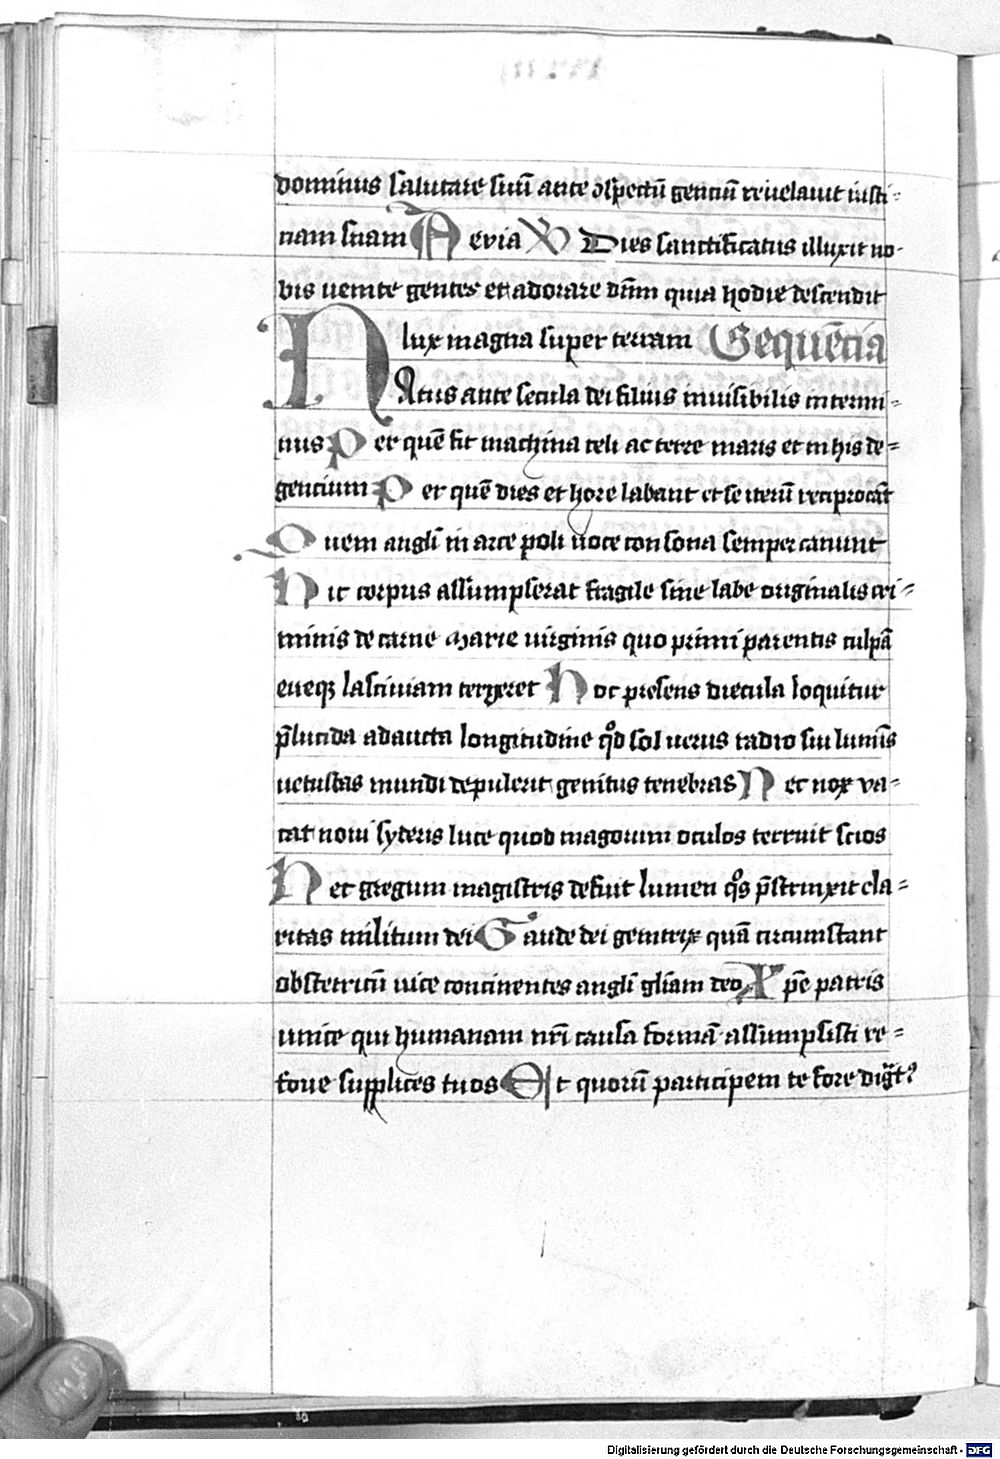 dominus salutare suū ante ↄspectū genciū reuelauit iusti-
ciam suam Aevia V Dies sanctificatus illuxit no-
bis uenite gentes et adorare dn̄m quia hodie descendit
lux magna super terram Sequēcia
Natus ante secula dei filius inuisibilis intermi-
nus Per quē fit machina celi ac terre maris et in his de-
gencium Per quē dies et hore labant et se iterū reciprocāt
Quem angli in arce poli uoce consona semper canunt
Hic corpus assumpserat fragile sine labe originalis cri-
minis de carne Marie uirginis quo primi parentis culpā
eueqꝫ lasciuiam tergeret Hoc presens diecula loquitur
p̄lucida adaucta longitudine qd sol uerus radio sui lumīs
uetustas mundi depulerit genitus tenebras Nec nox va-
cat noui syderis luce quod magorum oculos terruit scios
Nec gregum magistris defuit lumen qs p̄strinxit cla-
ritas militum dei Gaude dei genitrix quā circumstant
obstetricū uice concinentes angli gliam deo Xpe patris
unice qui humanam nri causa formā assumpsisti re-
foue supplices tuos Et quorū participem te fore dig̅t
Digitalisierung gefördert durch die Deutsche Forschungsgemeinschaft - DFG